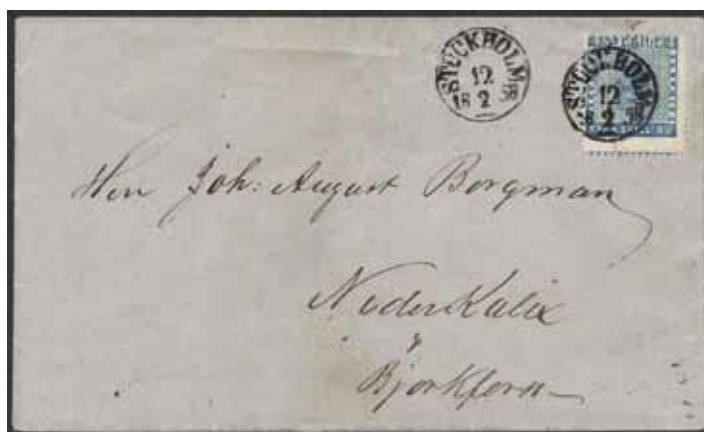 STOCKHOLM
12
18 2 58
STOCKHOLM
12
2 58
Herr Joh: August Bergman
Neder Kalix
Björkfors